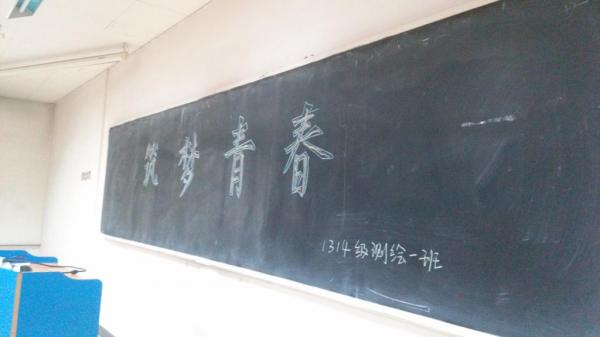 筑梦青春
1314级测绘一班